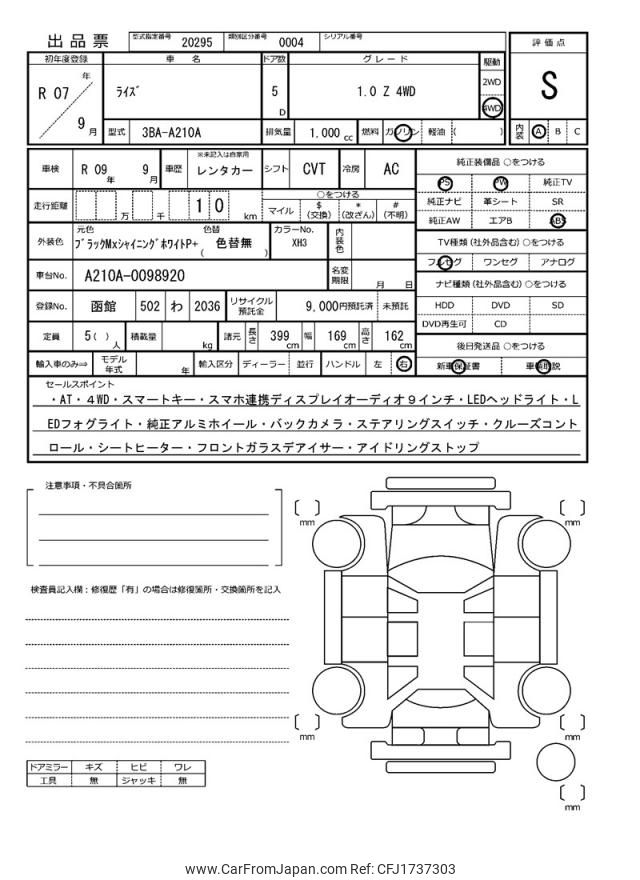 出品票 型式指定番号 20295 類別区分番号 0004 シリアル番号
評価点
S
内装 A B C
初年度登録 車名 ドア数 グレード 駆動
R 07 年 9 月
ライズ 5 D 1.0 Z 4WD 2WD 4WD
型式 3BA-A210A 排気量 1,000 cc 燃料 ガソリン 軽油 ( )
車検 R 09 年 9 月 車歴 ※未記入は自家用 レンタカー シフト CVT 冷房 AC
走行距離 万 千 1 0 km ○をつける マイル $(交換) *(改ざん) #(不明)
外装色 元色 ブラックMxシャイニングホワイトP+ 色替 ( 色替無 ) カラーNo. XH3 内装色
車台No. A210A-0098920 名変期限 月 日
登録No. 函館 502 わ 2036 リサイクル預託金 9,000円預託済 未預託
定員 5( )人 積載量 kg 諸元 長さ 399 cm 幅 169 cm 高さ 162 cm
輸入車のみ⇒ モデル年式 年 輸入区分 ディーラー 並行 ハンドル 左 右
純正装備品 ○をつける
PS PW 純正TV
純正ナビ 革シート SR
純正AW エアB ABS
TV種類(社外品含む) ○をつける
フルセグ ワンセグ アナログ
ナビ種類(社外品含む) ○をつける
HDD DVD SD
DVD再生可 CD
後日発送品 ○をつける
新車保証書 車輌取説
セールスポイント
・AT・4WD・スマートキー・スマホ連携ディスプレイオーディオ9インチ・LEDヘッドライト・L
EDフォグライト・純正アルミホイール・バックカメラ・ステアリングスイッチ・クルーズコント
ロール・シートヒーター・フロントガラスデアイサー・アイドリングストップ
注意事項・不具合箇所
検査員記入欄：修復歴「有」の場合は修復箇所・交換箇所を記入
mm
mm
mm
mm
mm
ドアミラー キズ ヒビ ワレ
工具 無 ジャッキ 無
www.CarFromJapan.com Ref: CFJ1737303